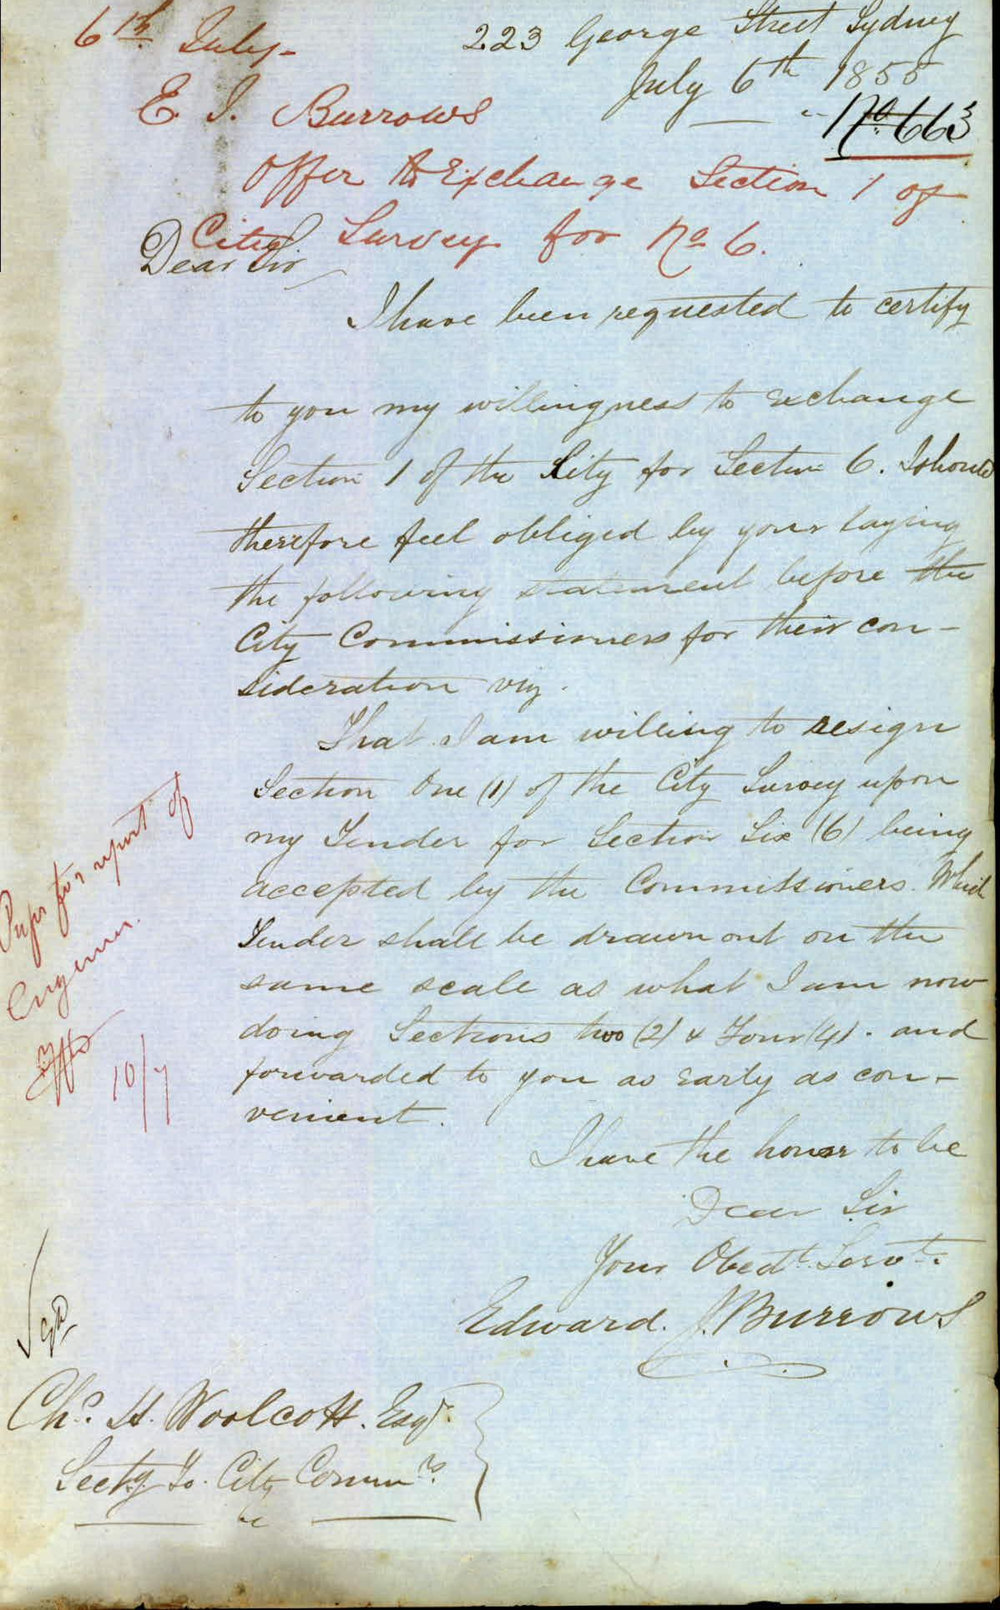 6th July
223 George Street Sydney
July 6th 1855
No 663
E. J. Burrows
Offer to Exchange Section 1 of
City Survey for No 6.
Dear Sir
I have been requested to certify
to you my willingness to exchange
Section 1 of the City for Section 6. I should
therefore feel obliged by your laying
the following statement before the
City Commissioners for their con-
sideration viz.
That I am willing to resign
Section One (1) of the City Survey upon
my Tender for Section Six (6) being
accepted by the Commissioners. Which
Tender shall be drawn out on the
same scale as what I am now
doing Sections two (2) & Four (4). and
forwarded to you as early as con-
venient.
for report of
Engineer.
10/7
I have the honor to be
Dear Sir
Your Obedt. Servt.
Edward. J. Burrows
Chs. H. Woolcott. Esqr.
Secty. To. City Commrs.